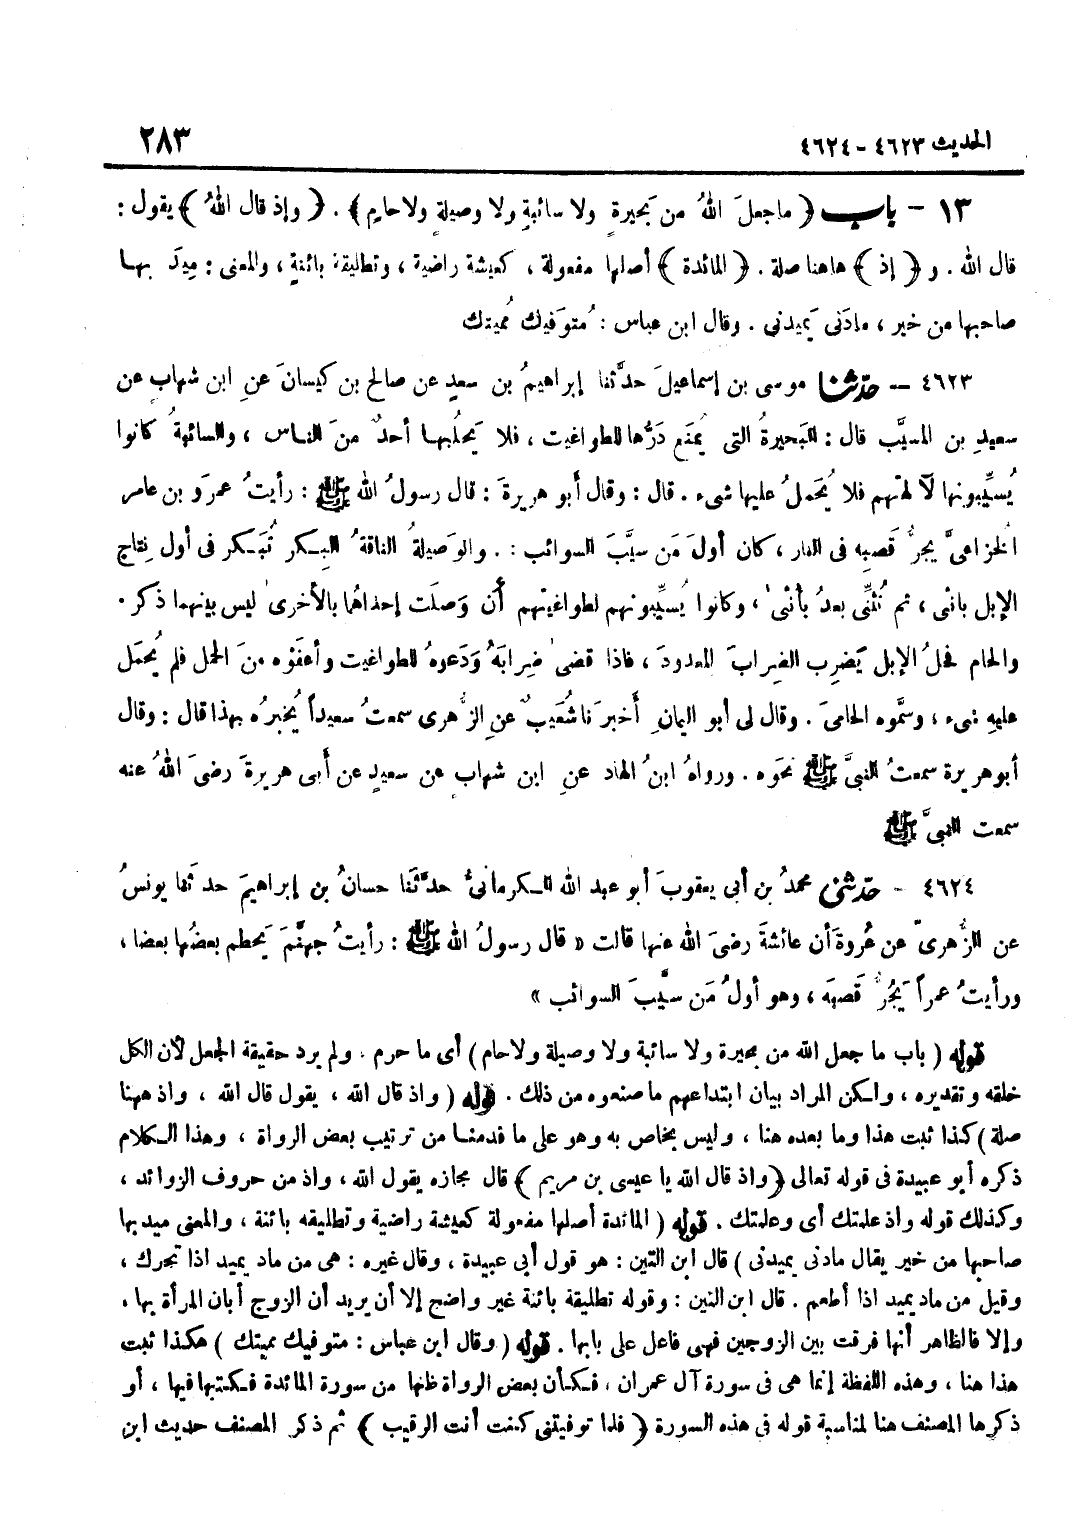 الحديث ٤٦٢٣ - ٤٦٢٤ ٢٨٣
١٣ - باب ﴿ ماجعلَ اللهُ من بَحيرةٍ ولا سائبةٍ ولا وصيلةٍ ولاحامٍ ﴾ . ﴿ وإذ قال اللهُ ﴾ يقول :
قال الله . و ﴿ إذ ﴾ هاهنا صلة . ﴿ المائدة ﴾ أصلها مفعولة ، كعيشة راضية ، وتطليقة بائنةٍ ، والمعنى : مِيدَ بها
صاحبها من خير ، مادَنى يَميدنى . وقال ابن عباس : مُتوَفيك مُميتك
٤٦٢٣ — حدّثنا موسى بن إسماعيلَ حدَّثنا إبراهيمُ بن سعدٍ عن صالح بن كيسانَ عنِ ابن شهابٍ عن
سعيدِ بن المسيَّب قال : البَحيرةُ التى يُمنَع دَرُّها للطواغيت ، فلا يَحلُبها أحدٌ منَ الناس ، والسائبةُ كانوا
يُسيِّبونها لآلهتهم فلا يُحمَلُ عليها شىء . قال : وقال أبو هريرةَ : قال رسولُ الله ﷺ : رأيتُ عمرَو بن عامر
الخزاعىَّ يجرُّ قصبه فى النار ، كان أولَ مَن سيَّبَ السوائب : . والوَصيلةُ الناقةُ البِكر تُبَكر فى أول نِتاج
الإبل بانثى ، ثم تُثنِّى بعدُ بأنثىٰ ، وكانوا يُسيِّبونهم لطواغيتهم أن وَصلَت إحداهُما بالأخرىٰ ليس بينهما ذكر ٠
والحام فحلُ الإبل يَضرِب الضِرابَ المعدودَ ، فاذا قضىٰ ضِرابَهُ وَدَعوهُ للطواغيت وأعفَوْه منَ الحمل فلم يُحمَل
عليهِ شىء ، وسمَّوه الحامىَ . وقال لى أبو اليمانِ أخبرَنا شُعَيبٌ عنِ الزُّهرى سمعتُ سعيداً يُخبرُه بهذا قال : وقال
أبوهريرة سمعتُ النبىَّ ﷺ نحوَه . ورواهُ ابنُ الهاد عنِ ابن شهابٍ عن سعيدٍ عن أبى هريرةَ رضىَ اللهُ عنه
سمعت النبىَّ ﷺ
٤٦٢٤ - حدّثنى محمدُ بن أبى يعقوبَ أبو عبد الله الكرمانىُّ حدَّثَنا حسانُ بن إبراهيمَ حدثنا يونسُ
عن الزُّهرىّ عن عُروةَ أن عائشةَ رضىَ الله عنها قالت « قال رسولُ الله ﷺ : رأيتُ جهنَّمَ يَحطم بعضُها بعضا ،
ورأيتُ عمراً يَجُرُّ قَصبَه ، وهو أولُ مَن سيَّبَ السوائب »
قوله ( باب ما جعل الله من بحيرة ولا سائبة ولا وصيلة ولاحام ) أى ما حرم ، ولم يرد حقيقة الجعل لأن الكل
خلقه وتقديره ، ولكن المراد بيان ابتداعهم ما صنعوه من ذلك . قوله ( واذ قال الله ، يقول قال الله ، واذ ههنا
صلة ) كذا ثبت هذا وما بعده هنا ، وليس بخاص به وهو على ما قدمنا من ترتيب بعض الرواة ، وهذا الكلام
ذكره أبو عبيدة فى قوله تعالى ﴿ واذ قال الله يا عيسى بن مريم ﴾ قال مجازه يقول الله ، واذ من حروف الزوائد ،
وكذلك قوله واذ علمتك أى وعلمتك . قوله ( المائدة أصلها مفعولة كعيشة راضية وتطليقه بائنة ، والمعنى ميد بها
صاحبها من خير يقال مادنى يميدنى ) قال ابن التين : هو قول أبى عبيدة ، وقال غيره : هى من ماد يميد اذا تحرك ،
وقيل من ماد يميد اذا أطعم . قال ابن التين : وقوله تطليقة بائنة غير واضح إلا أن يريد أن الزوج أبان المرأة بها ،
وإلا فالظاهر أنها فرقت بين الزوجين فهى فاعل على بابها . قوله ( وقال ابن عباس : متوفيك مميتك ) هكذا ثبت
هذا هنا ، وهذه اللفظة إنما هى فى سورة آل عمران ، فكأن بعض الرواة ظنها من سورة المائدة فكتبها فيها ، أو
ذكرها المصنف هنا لمناسبة قوله فى هذه السورة ﴿ فلما توفيتنى كنت أنت الرقيب ﴾ ثم ذكر المصنف حديث ابن